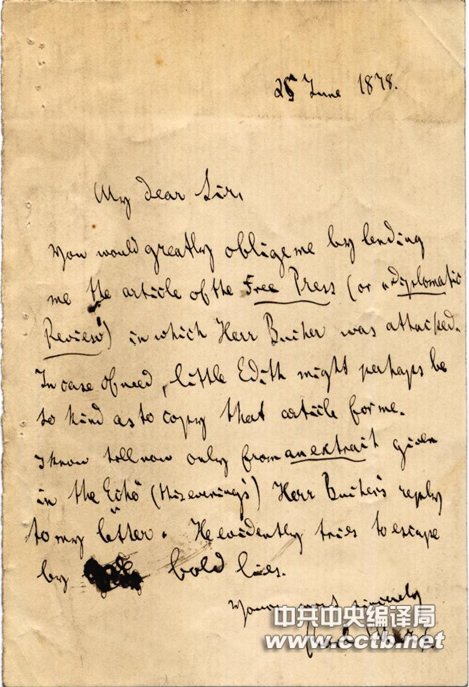 25 June 1878.
My dear Sir,
You would greatly oblige me by lending
me the article of the Free Press (or "diplomatic
Review") in which Herr Bucher was attacked.
In case of need, little Edith might perhaps be
so kind as to copy that article for me.
I know till now only from an extrait given
in the "Echo" (this evening's) Herr Bucher's reply
to my letter. He evidently tries to escape
by bold lies.
Yours most sincerely
中共中央编译局
www.cctb.net